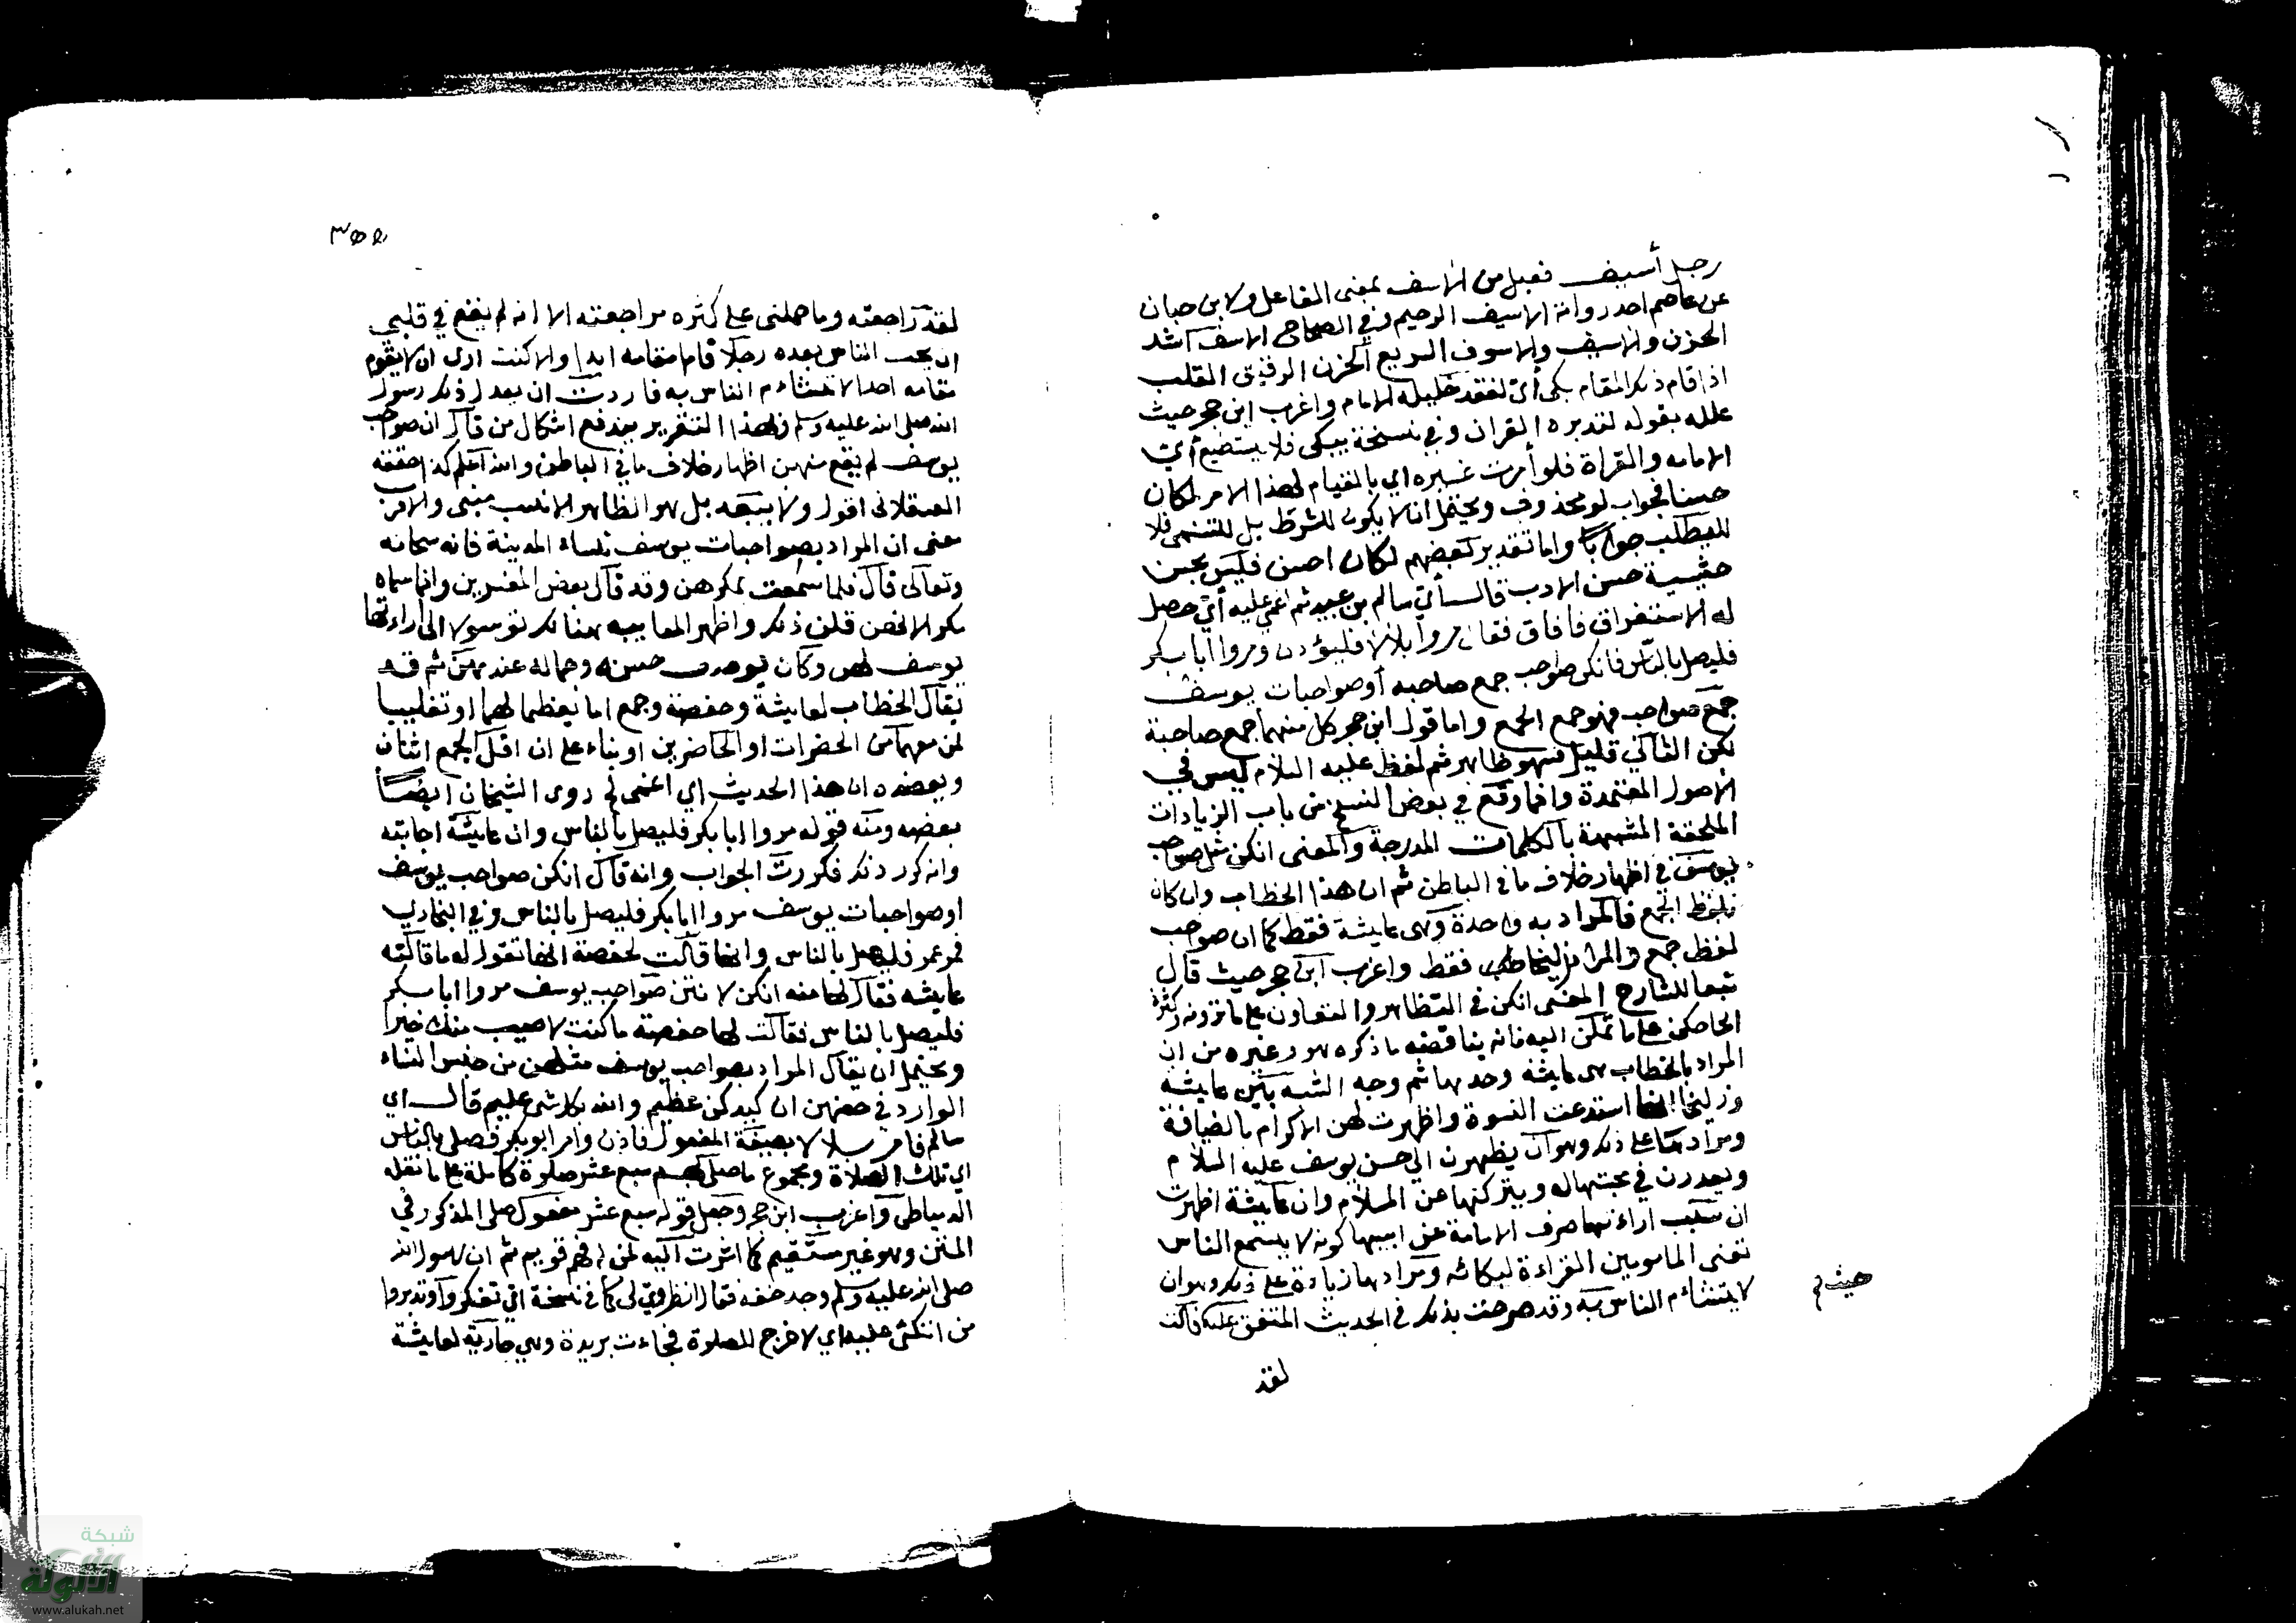 رجل أسيف فعيل من الاسف بمعنى الفاعل ولابن حبان
عن عاصم احد رواته الاسيف الرحيم وفي الصحاح الاسف اشد
الحزن والاسيف والاسوف السريع الحزن الرقيق القلب
اذا قام ذلك المقام بكى أي لفقد خليله الامام واغرب ابن حجر حيث
علله بقوله لتدبره القران وفي نسخة يبكى فلا يستطيع أي
الامامة والقراة فلو أمرت غيره اي بالقيام لهذا الامر لكان
حسنا فجواب لو محذوف ويحتمل ان لا يكون للشرط بل للتمنى فلا
لطلب جوابا واما تقدير بعضهم لكان احسن فليس بحسن
حيثية حسن الادب قال سأي سالم بن عبيد ثم اغمي عليه أي حصل
له الاستغراق فافاق فقال مروا بلالا فليؤذن ومروا ابابكر
فليصل بالناس فانكن صواحب جمع صاحبه أو صواحبات يوسف
جمع صواحب فهو جمع الجمع واما قول ابن حجر كل منهما جمع صاحبة
لكن الثاني قليل فسهو ظاهر ثم لفظ عليه السلام ليس في
الاصول المعتمدة وانما وقع في بعض النسخ من باب الزيادات
الملحقة المشبهة بالكلمات المدرجة والمعنى انكن مثل صواحب
يوسف في اظهار خلاف ما في الباطن ثم ان هذا الخطاب وان كان
بلفظ الجمع فالمراد به واحدة وهى عايشة فقط كما ان صواحب
لفظ جمع والمراد زليخا فقط واغرب ابن حجر حيث قال
تبعا للشارح المعنى انكن في التظاهر والتعاون على ما تردنه وكثرة
الحاحكن على ما تملن اليه فانه يناقضه ما ذكره هو وغيره من ان
المراد بالخطاب هى عايشة وحدها ثم وجه الشبه بين عايشة
وزليخا انها استدعت النسوة واظهرت لهن الاكرام بالضيافة
ومرادها على ذلك وهو ان ينظرن الى حسن يوسف عليه السلام
ويعذرن في محبتها له ويتركنها من الملام وان عايشة اظهرت
ان سبب ارادتها صرف الامامة عن ابيها كونه لا يسمع الناس
تعنى المامومين القراءة لبكائه ومرادها زيادة على ذلك وهو ان
لا يتشاءم الناس به وقد صرحت بذلك في الحديث المتفق عليه قالت
حيث م
لقد
٣٥٥
لقد راجعته وما حملنى على كثرة مراجعته الا انه لم يقع في قلبي
ان يحب الناس بعده رجلا قام مقامه ابدا والا كنت ارى ان لا يقوم
مقامه احد الا تشاءم الناس به فاردت ان يعدل ذلك رسول
الله صلى الله عليه وسلم وبهذا التقرير يندفع اشكال من قال ان صواحب
يوسف لم يقع منهن اظهار خلاف ما في الباطن والله أعلم كذا حققه
العسقلانى اقول ولا يتجه بل هو الظاهر الانسب مبنى والاقرب
معنى ان المراد بصواحبات يوسف نساء المدينة فانه سبحانه
وتعالى قال فلما سمعت بمكرهن وقد قال بعض المفسرين وانما سماه
مكرا لانهن قلن ذلك واظهر المعايبة هنالك توسلا الى اراءتها
يوسف لهن وكان يوصف حسنه وجماله عندهن ثم قد
يقال الخطاب لعايشة وحفصة وجمع اما تعظيما لهما او تغليبا
لمن معهما من الحضرات او الحاضرين او بناء على ان اقل الجمع اثنان
ويعضده ان هذا الحديث اي اغمى الخ روى الشيخان ايضا
بعضه ومنه قوله مروا ابابكر فليصل بالناس وان عايشة اجابته
وانه كرر ذلك فكررت الجواب وانه قال انكن صواحب يوسف
او صواحبات يوسف مروا ابابكر فليصل بالناس وفي البخاري
فمر عمر فليصل بالناس وانها قالت لحفصة انها تقول له ما قالته
عايشه فقال لها مه انكن لانتن صواحب يوسف مروا ابابكر
فليصل بالناس فقالت لها حفصة ما كنت لاصيب منك خيرا
ويحتمل ان يقال المراد بصواحب يوسف مثلهن من جنس النساء
الوارد في حقهن ان كيدكن عظيم والله بكل شئ عليم قال اي
سالم فامر بلالا بصيغة المفعول فاذن وامر ابو بكر فصلى بالناس
اي تلك الصلاة ومجموع ما صلى بهم سبع عشر صلوة كاملة على ما نقله
الدمياطى واغرب ابن حجر وجعل قوله سبع عشر مفعول صلى المذكور في
المتن وهو غير مستقيم كما اشرت اليه لمن له فهم قويم ثم ان رسول الله
صلى الله عليه وسلم وجد خفه فقال انظروا لى كما في نسخة اي تفكروا وتدبروا
من اتكئ عليه اي لاخرج للصلوة فجاءت بريرة وهي جارية لعايشة
شبكة
الألوكة
www.alukah.net